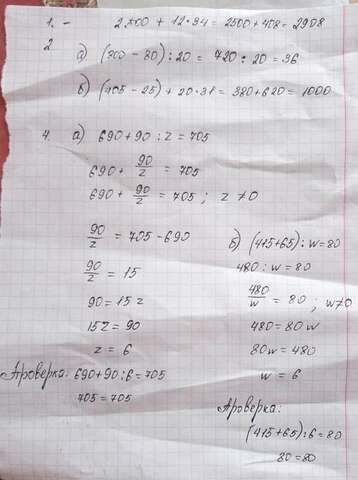 1. - 2.500 + 12·34 = 2500+408 = 2908
2
а) (700 - 80) : 20 = 720 : 20 = 36
б) (405 - 25) + 20·31 = 380+620 = 1000
4. а) 690+90 : z = 705
690 + 90/z = 705
690 + 90/z = 705 ; z ≠0
90/z = 705-690
90/z = 15
90=15 z
15z = 90
z = 6
Проверка: 690+90:6=705
705=705
б) (415+65) : w=80
480 : w = 80
480/w = 80 ; w≠0
480=80 w
80w = 480
w = 6
Проверка:
(415+65):6=80
80=80